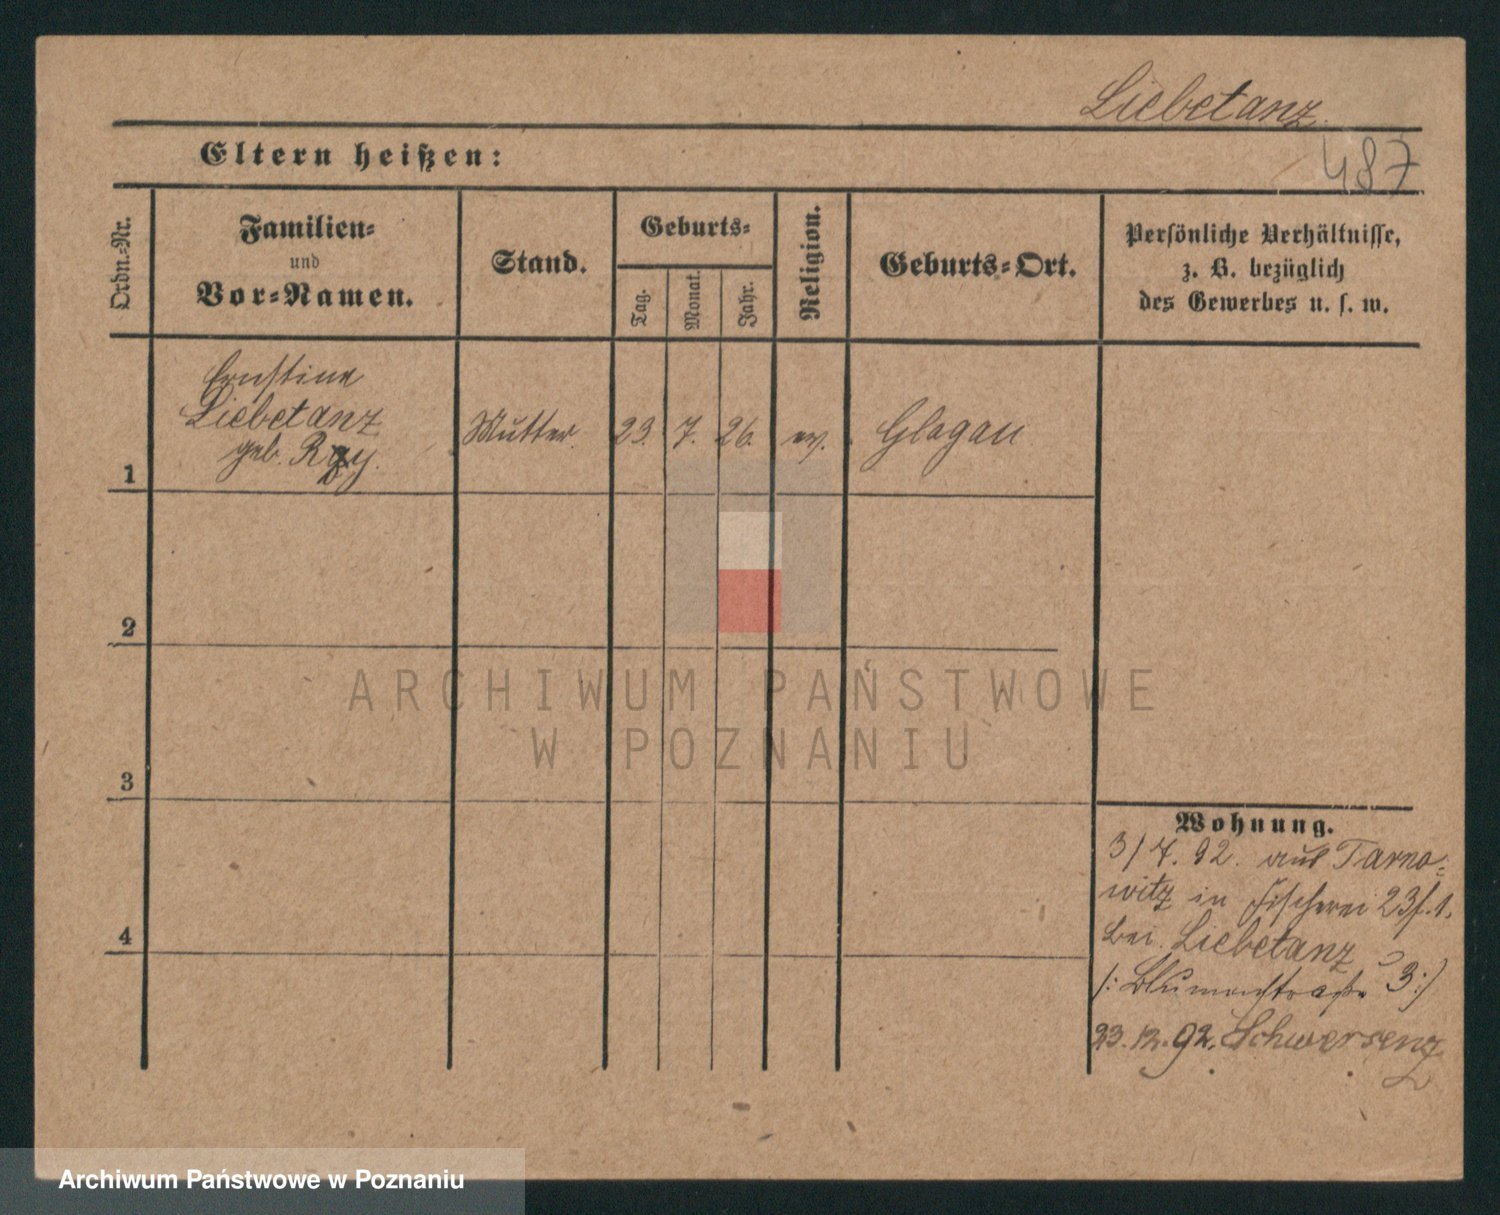 Liebetanz.
487
Eltern heißen:
Ordn.-Nr.
Familien-
und
Vor-Namen.
Stand.
Geburts-
Tag.
Monat.
Jahr.
Religion.
Geburts-Ort.
Persönliche Verhältnisse,
z. B. bezüglich
des Gewerbes u. s. w.
Ernstine
Liebetanz
geb.
1
Mutter
23. 7. 26.
ev.
Glogau
2
3
4
Wohnung.
3/7. 92. aus Tarno-
witz in Fischerei 23
bei Liebetanz
/: Blumenstraße 3 :/
23. 12. 92. Schwersenz
ARCHIWUM PAŃSTWOWE
W POZNANIU
Archiwum Państwowe w Poznaniu